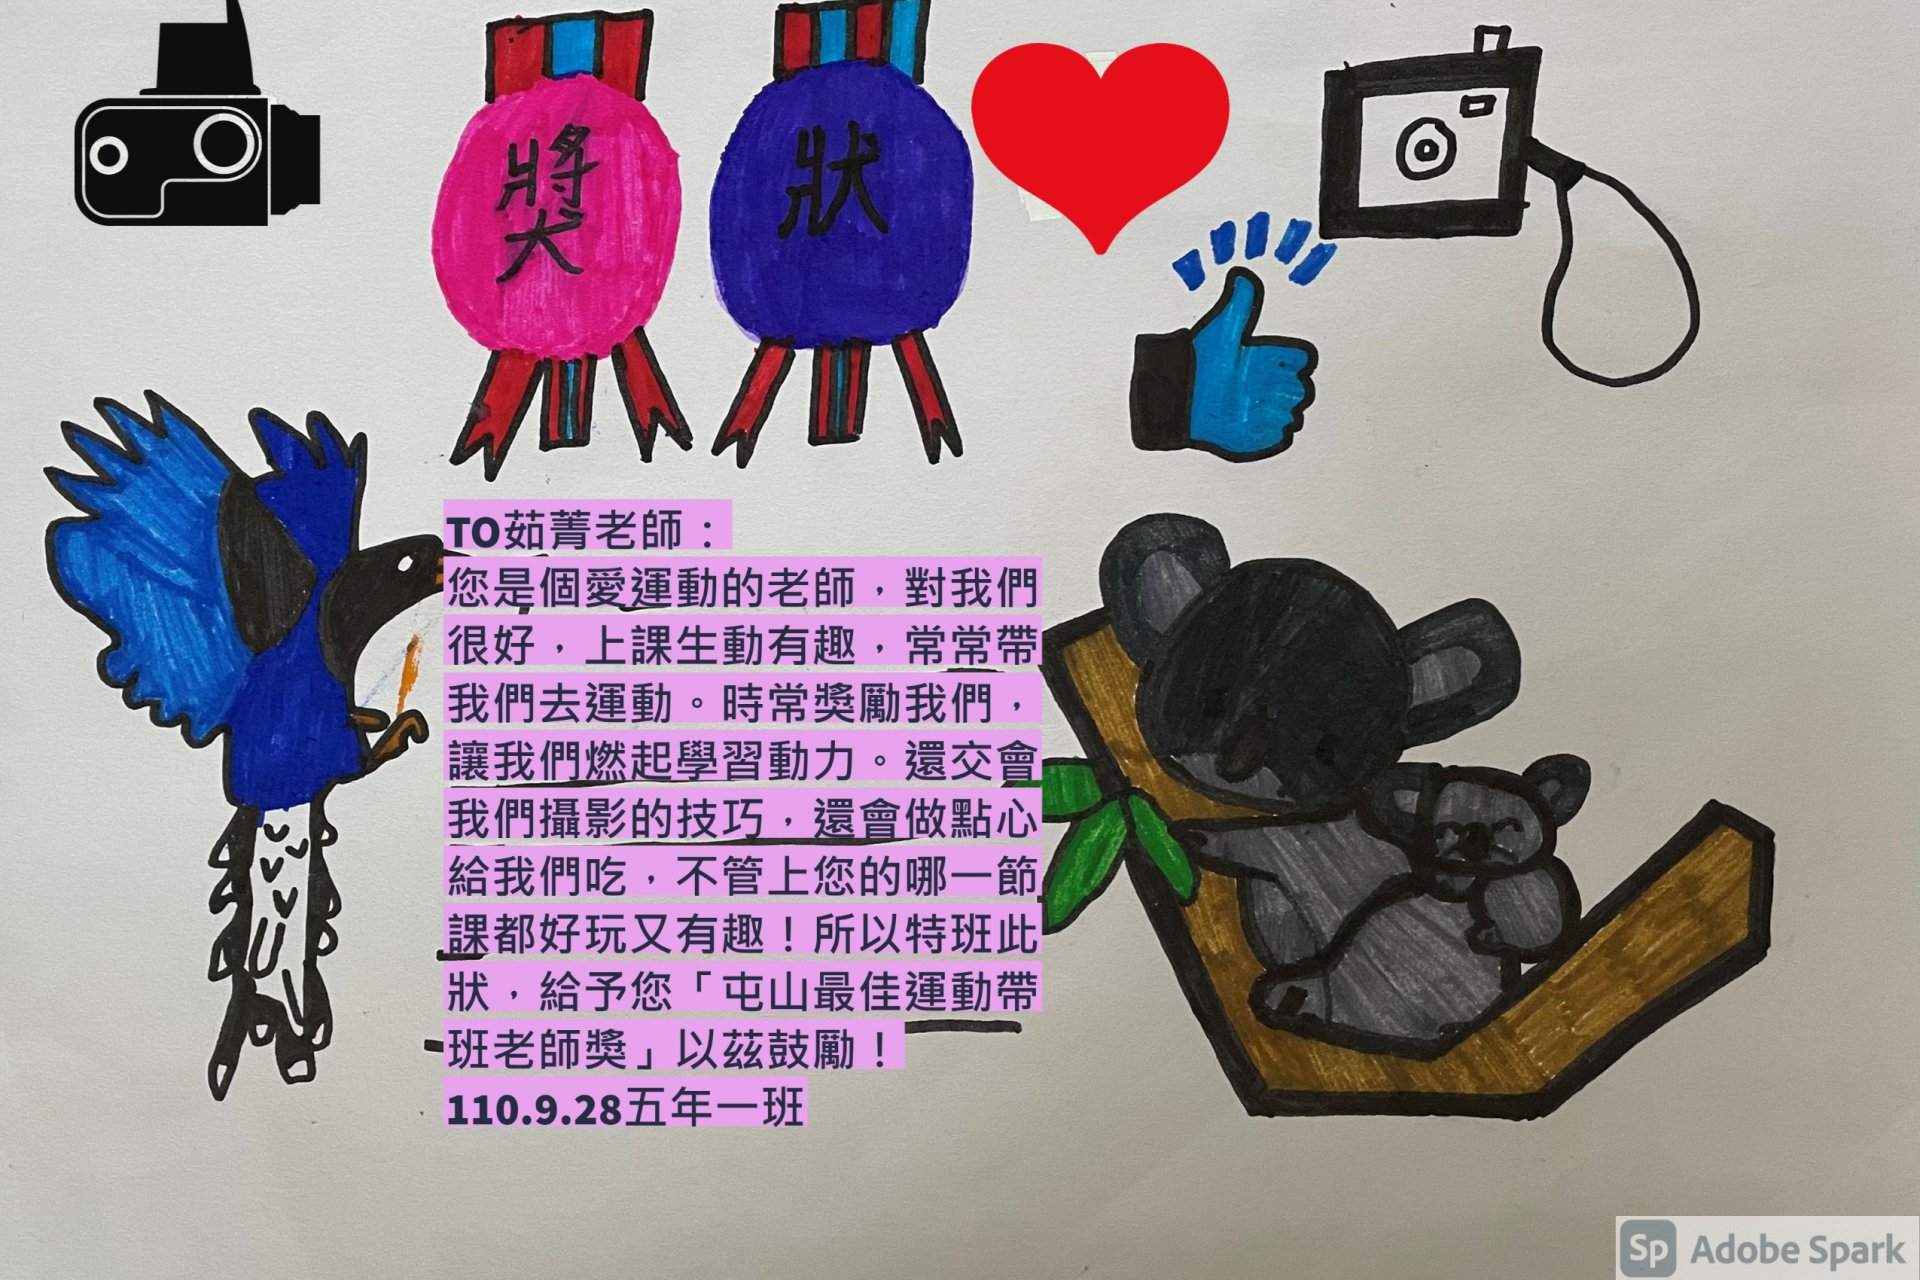 獎 狀
TO茹菁老師：
您是個愛運動的老師，對我們
很好，上課生動有趣，常常帶
我們去運動。時常獎勵我們，
讓我們燃起學習動力。還交會
我們攝影的技巧，還會做點心
給我們吃，不管上您的哪一節
課都好玩又有趣！所以特班此
狀，給予您「屯山最佳運動帶
班老師獎」以茲鼓勵！
110.9.28五年一班
Sp Adobe Spark